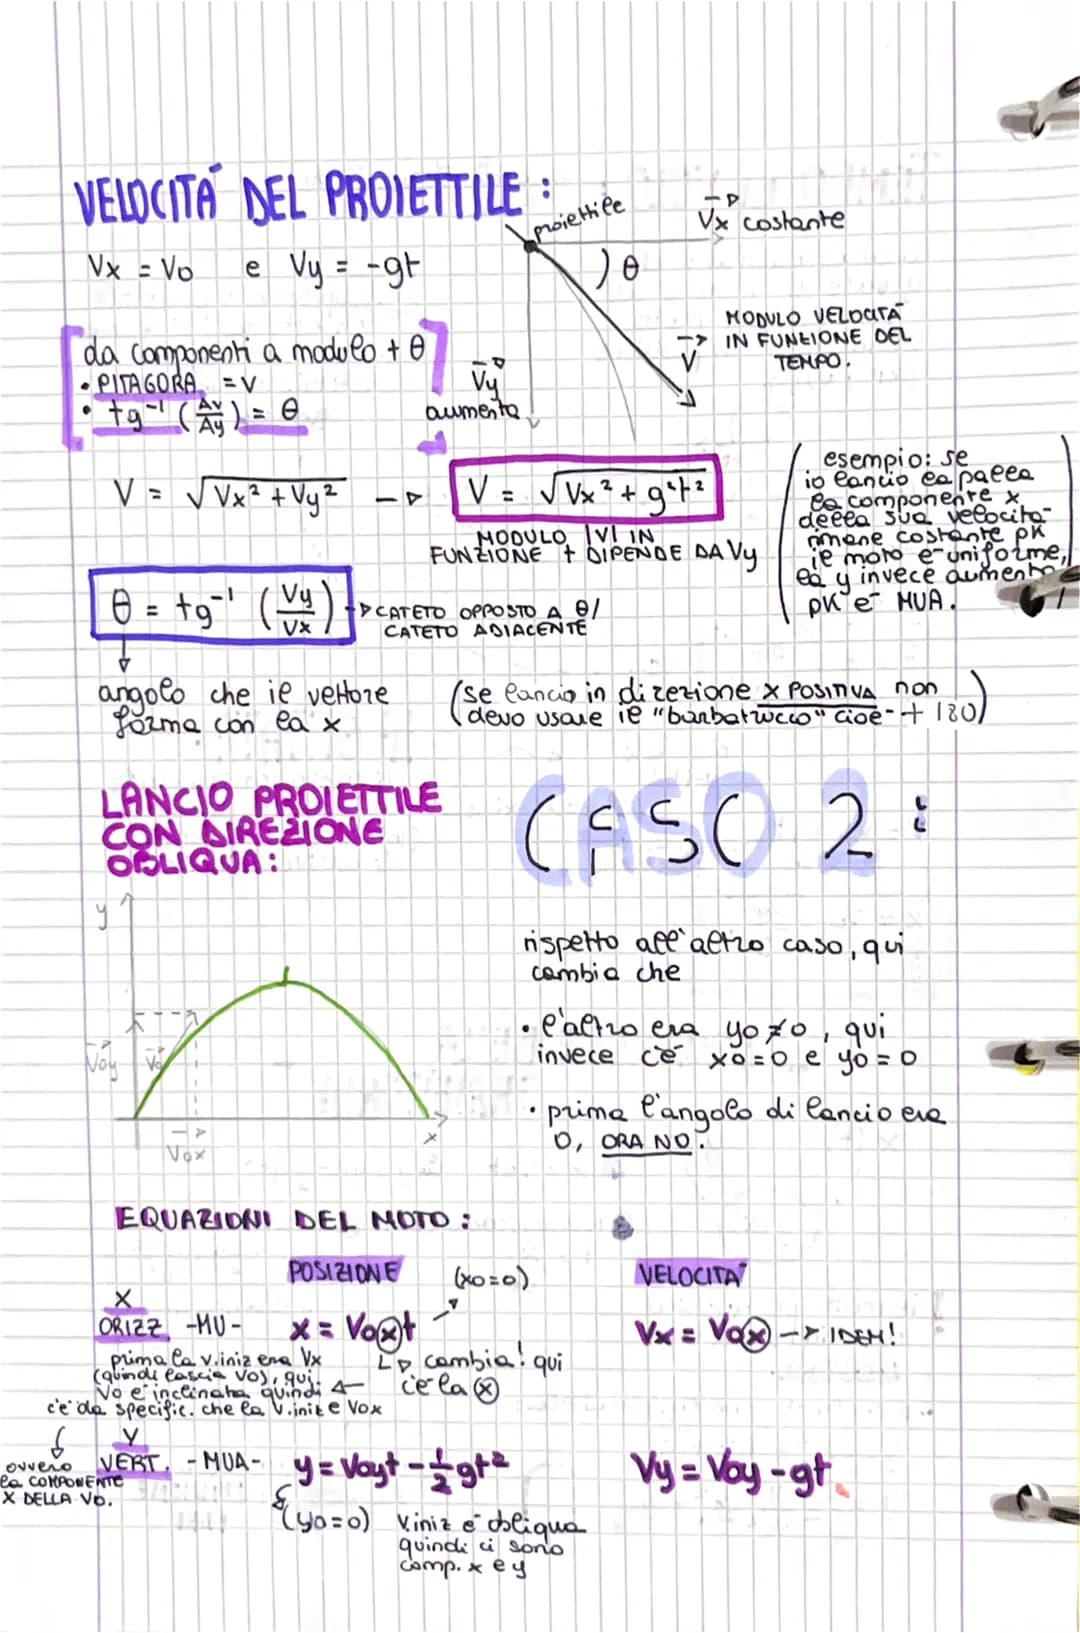 VELOCITÀ DEL PROIETTILE :
proiettile
Vx costante
Vx = Vo e Vy = -gt
θ
MODULO VELOCITÀ
IN FUNZIONE DEL
TEMPO.
V
da componenti a modulo + θ
• PITAGORA = V
• tg⁻¹ (Av/Ay) = θ
Vy
aumenta
V = √Vx² + Vy² → V = √Vx² + g²t²
MODULO |V| IN
FUNZIONE t DIPENDE DA Vy
esempio: se
io lancio la palla
la componente x
della sua velocità
rimane costante pk
il moto è uniforme,
la y invece aumenta
pk è MUA.
θ = tg⁻¹ (Vy/Vx) → CATETO OPPOSTO A θ/
CATETO ADIACENTE
angolo che il vettore
forma con la x
(se lancio in direzione x POSITIVA non
devo usare il "barbatrucco" cioè + 180)
LANCIO PROIETTILE
CON DIREZIONE
OBLIQUA:
CASO 2 :
y
Voy
Vo
Vox
x
rispetto all'altro caso, qui
cambia che
• l'altro era yo≠0, qui
invece c'è xo=0 e yo=0
• prima l'angolo di lancio era
0, ORA NO.
EQUAZIONI DEL MOTO :
POSIZIONE (xo=0) VELOCITÀ
X
ORIZZ -MU- x = Voxt Vx = Vox → IDEM!
prima la v.iniz era Vx
(quindi lascia Vo), qui
Vo è inclinata quindi
c'è da specific. che la V.iniz è Vox
cambia! qui
c'è la x
ovvero
la COMPONENTE
X DELLA Vo.
Y
VERT. -MUA- y = Voyt - 1/2 gt² Vy = Voy - gt
(yo=0) V.iniz è obliqua
quindi ci sono
comp. x e y